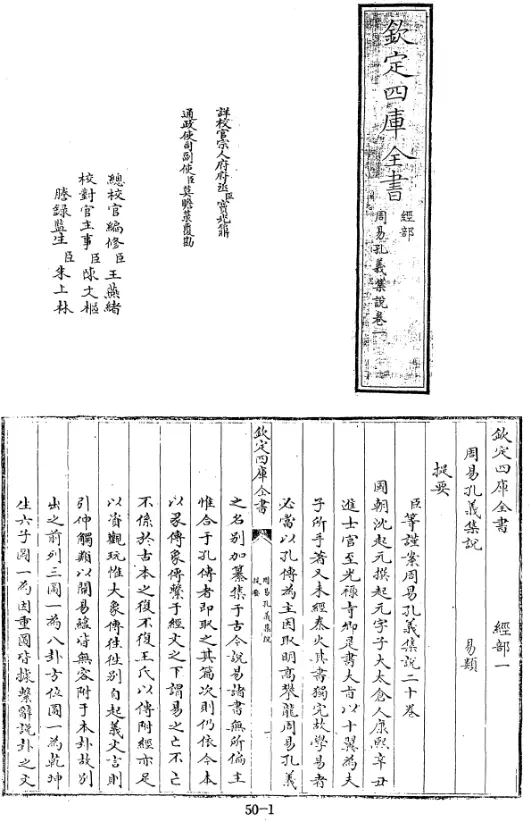 欽定四庫全書
經部
周易孔義集說卷一
詳校官宗人府府丞臣竇光鼐
通政使司副使臣莫瞻菉覆勘
總校官編修臣王燕緒
校對官主事臣陳文樞
謄錄監生臣朱上林
欽定四庫全書 經部一
周易孔義集說 易類
提要
臣等謹案周易孔義集說二十卷
國朝沈起元撰起元字子大太倉人康熙辛丑
進士官至光祿寺卿是書大旨以十翼為夫
子所手著又未經秦火其書獨完故學易者
必當以孔傳為主因取明高攀龍周易孔義
欽定四庫全書
周易孔義集說
提要
之名別加纂集于古今說易諸書無所偏主
惟合于孔傳者即取之其篇次則仍依今本
以彖傳象傳繫于經文之下謂易之亡不亡
不係於古本之復不復王氏以傳附經亦足
以資觀玩惟大象傳往往別自起義文言則
引伸觸類以闡易蘊皆無容附于本卦故別
出之前列三圖一為八卦方位圖一為乾坤
生六子圖一為因重圖皆據繫辭說卦之文
50-1